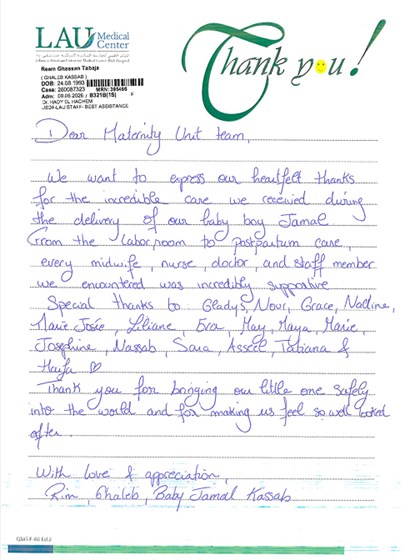 LAU Medical Center
Thank you!
Ream Ghassan Tabaja
( GHALEB KASSAB )
DOB: 24.08.1993
Case: 260087323 MRN: 395466
B321B(1S) F
Dr. HADY EL HACHEM
Dear Maternity Unit team,
We want to express our heartfelt thanks
for the incredible care we received during
the delivery of our baby boy Jamal
From the labor room to postpartum care,
every midwife, nurse, doctor, and staff member
we encountered was incredibly supportive
Special thanks to Gladys, Nour, Grace, Nadine,
Marie Josée, Liliane, Eva, May, Maya, Marie,
Josephine, Nassab, Sara, Asseel, Tatiana &
Haifa ♡
Thank you for bringing our little one safely
into the world and for making us feel so well looked
after.
With love & appreciation,
Rim, Ghaleb, Baby Jamal Kassab